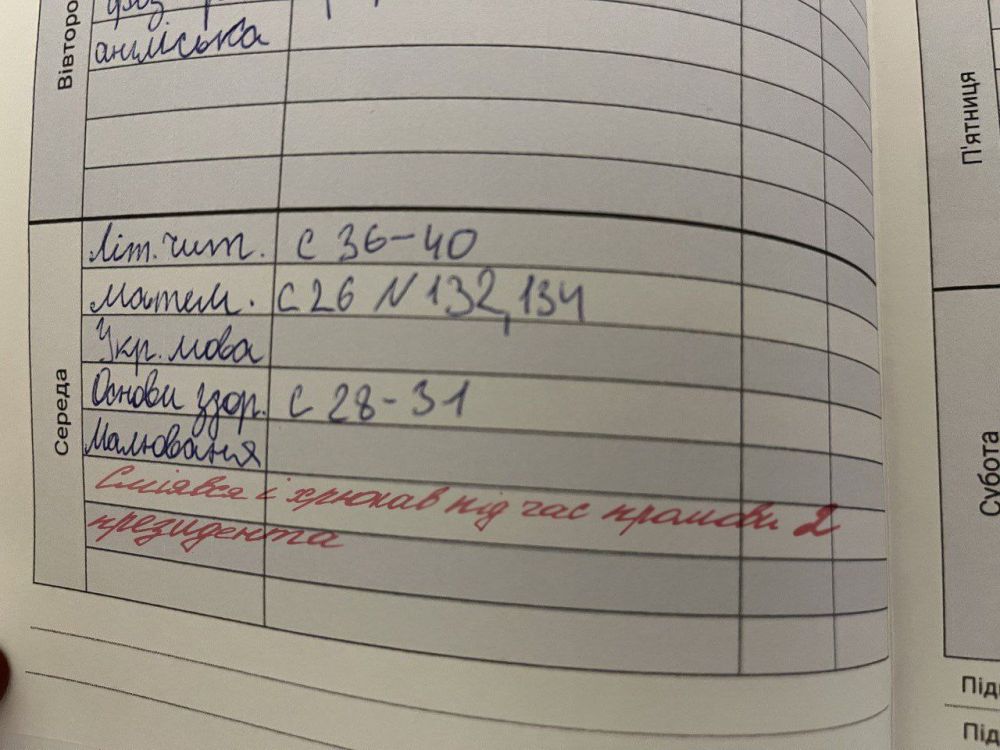 Вівторо
англіська
Літ. чит. с 36-40
матем. с 26 N 132, 134
Укр. мова
Основи здор. с 28-31
Малювання
Сміявся і хрюкав під час промови 2
президента
Середа
П'ятниця
Субота
Підп
Під